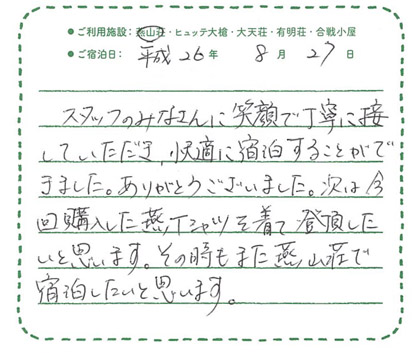 ●ご利用施設：燕山荘・ヒュッテ大槍・大天荘・有明荘・合戦小屋
●ご宿泊日：平成26年 8月 27日
スタッフのみなさんに笑顔で丁寧に接
していただき、快適に宿泊することがで
きました。ありがとうございました。次は今
回購入した燕Tシャツを着て登頂した
いと思います。その時もまた燕山荘で
宿泊したいと思います。